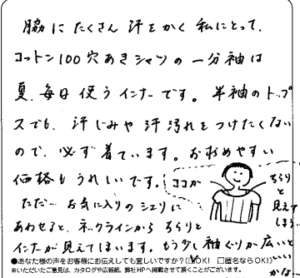 脇に たくさん 汗を かく 私にとって、
コットン100 穴あきシャツの 一分袖は
夏、毎日 使う インナーです。 半袖の トップ
スでも、汗じみや 汗汚れを つけたくない
ので、必ず 着ています。 お求めやすい
価格も うれしいです。
ただ… お気に入りの シエリに
あわせると、ネックラインから ちらりと
インナーが 見えてしまいます。もう少し 袖ぐりが 広いと
いいかな
ココが
ちらりと
見えて
しまう
●あなた様の声をお客様にお伝えしても宜しいですか?(☑OK! □匿名ならOK!)
※いただいたご意見は、カタログや広告紙、弊社HPへ掲載させて頂くことがございます。